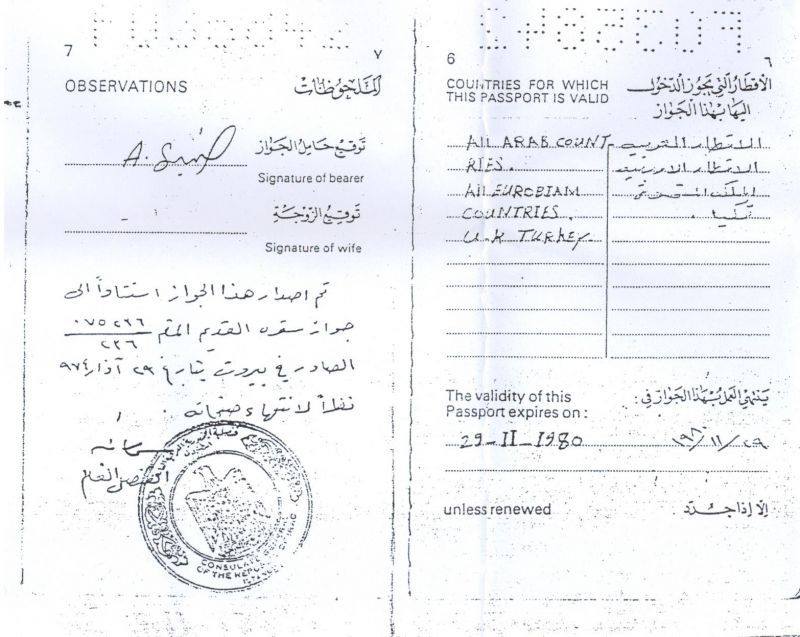 7
٧
OBSERVATIONS
الملحوظات
توقيع حامل الجواز
Signature of bearer
توقيع الزوجة
Signature of wife
تم اصدار هذا الجواز استناداً الى
جواز سفره القديم المرقم ٠٧٥٢٢٦
٢٢٦
الصادر في بيروت بتاريخ ٢٩ آذار ٩٧٤
نظراً لانتهاء صفحاته .
القنصل العام
CONSULATE
OF THE REPUBLIC
6
٦
COUNTRIES FOR WHICH
THIS PASSPORT IS VALID
الأقطار التي يجوز الدخول
اليها بهذا الجواز
All ARAB COUNT-
RIES.
All EUROBIAM
COUNTRIES.
U.K TURKEY
الاقطار العربيه
الاقطار الاوربيه
المملكه المتحدة
تركيا .
The validity of this
Passport expires on :
ينتهي العمل بهذا الجواز في :
29-II-1980
١٩٨٠/١١/٢٩
unless renewed
إلا إذا جدد